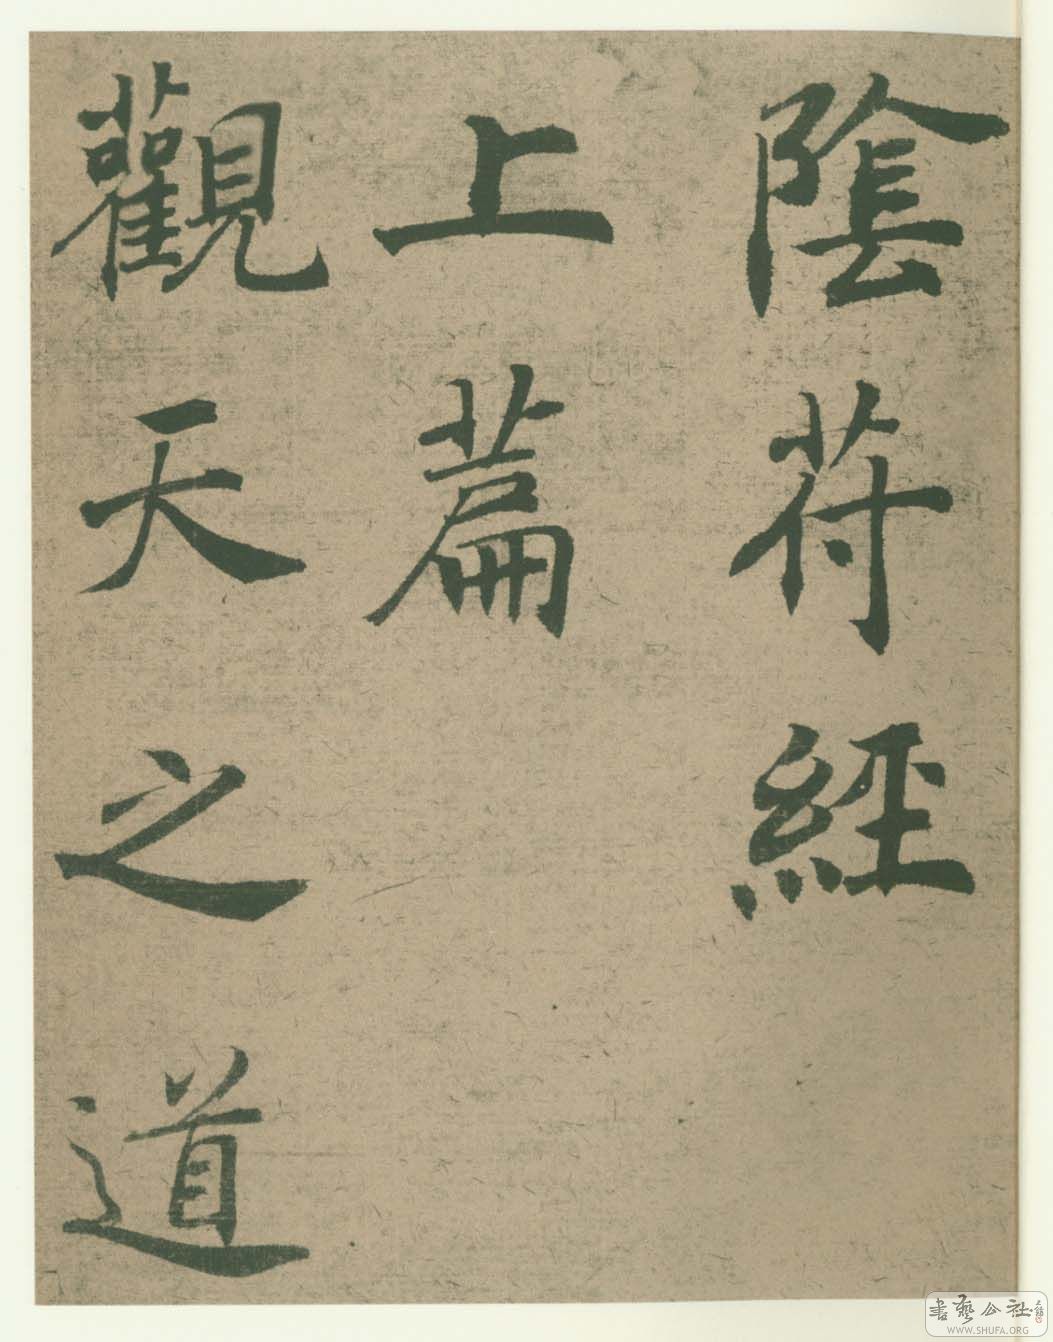 陰符經
上篇
觀天之道
書藝公社
WWW.SHUFA.ORG